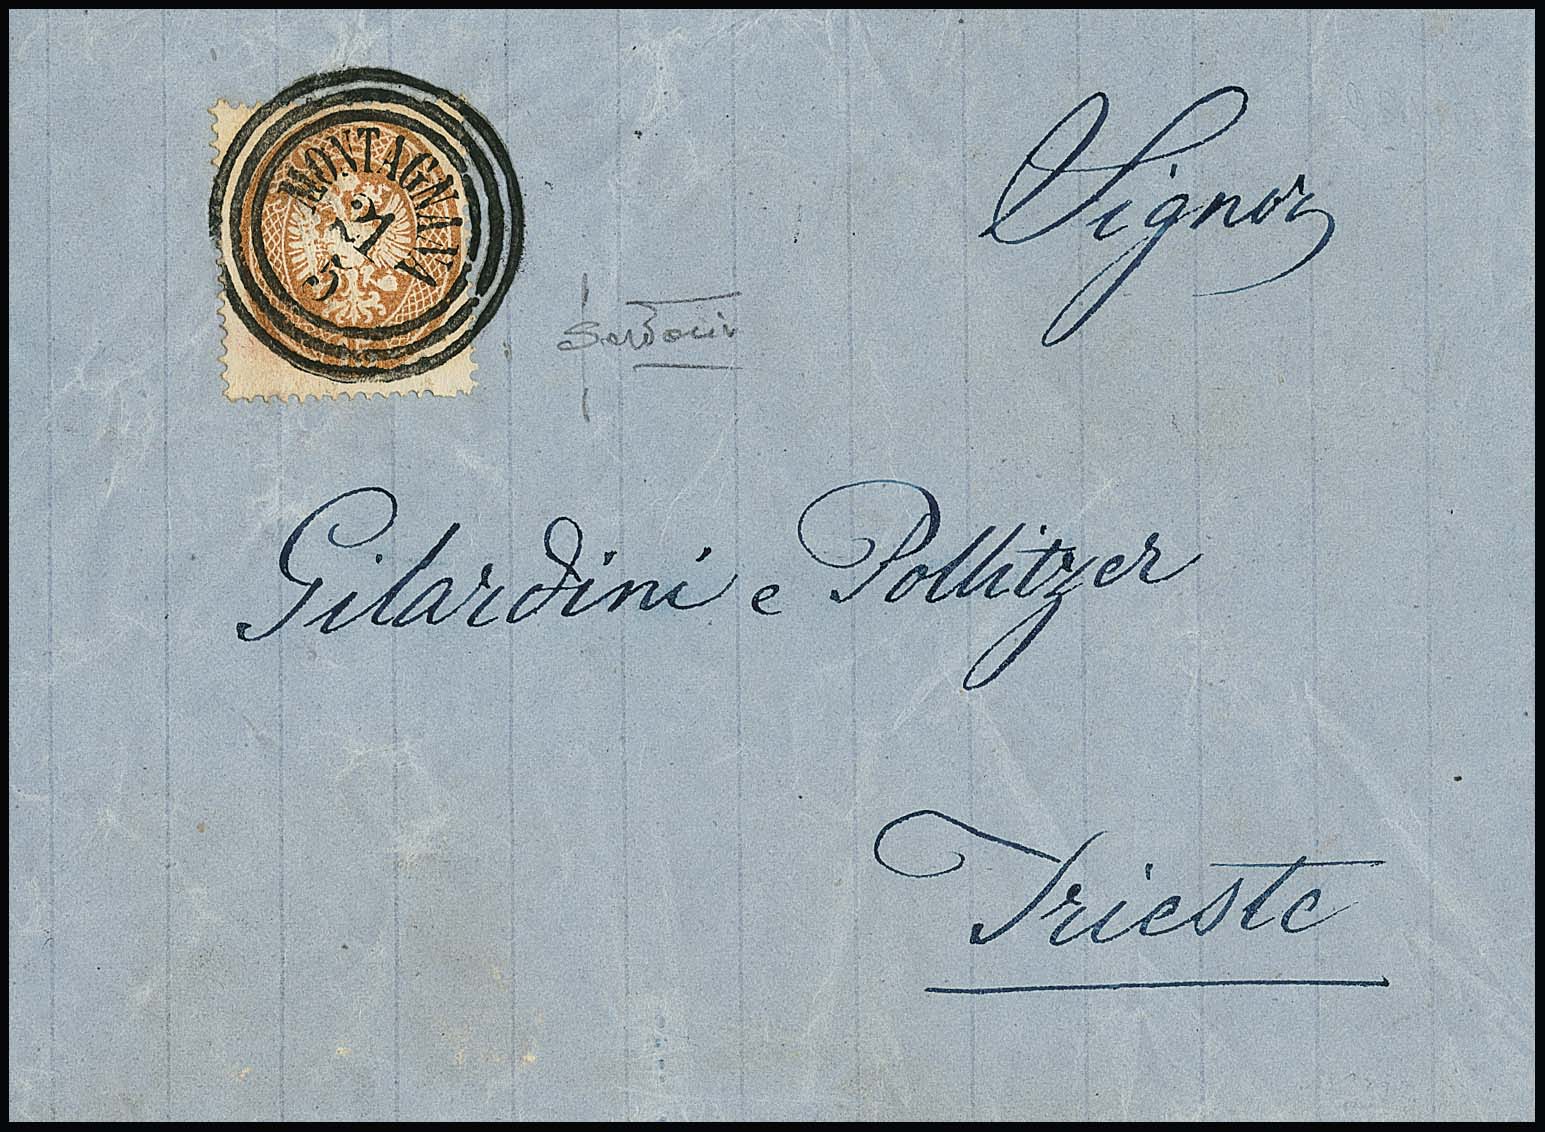 MONTAGNANA
Signor
Gilardini e Pollitzer
Trieste